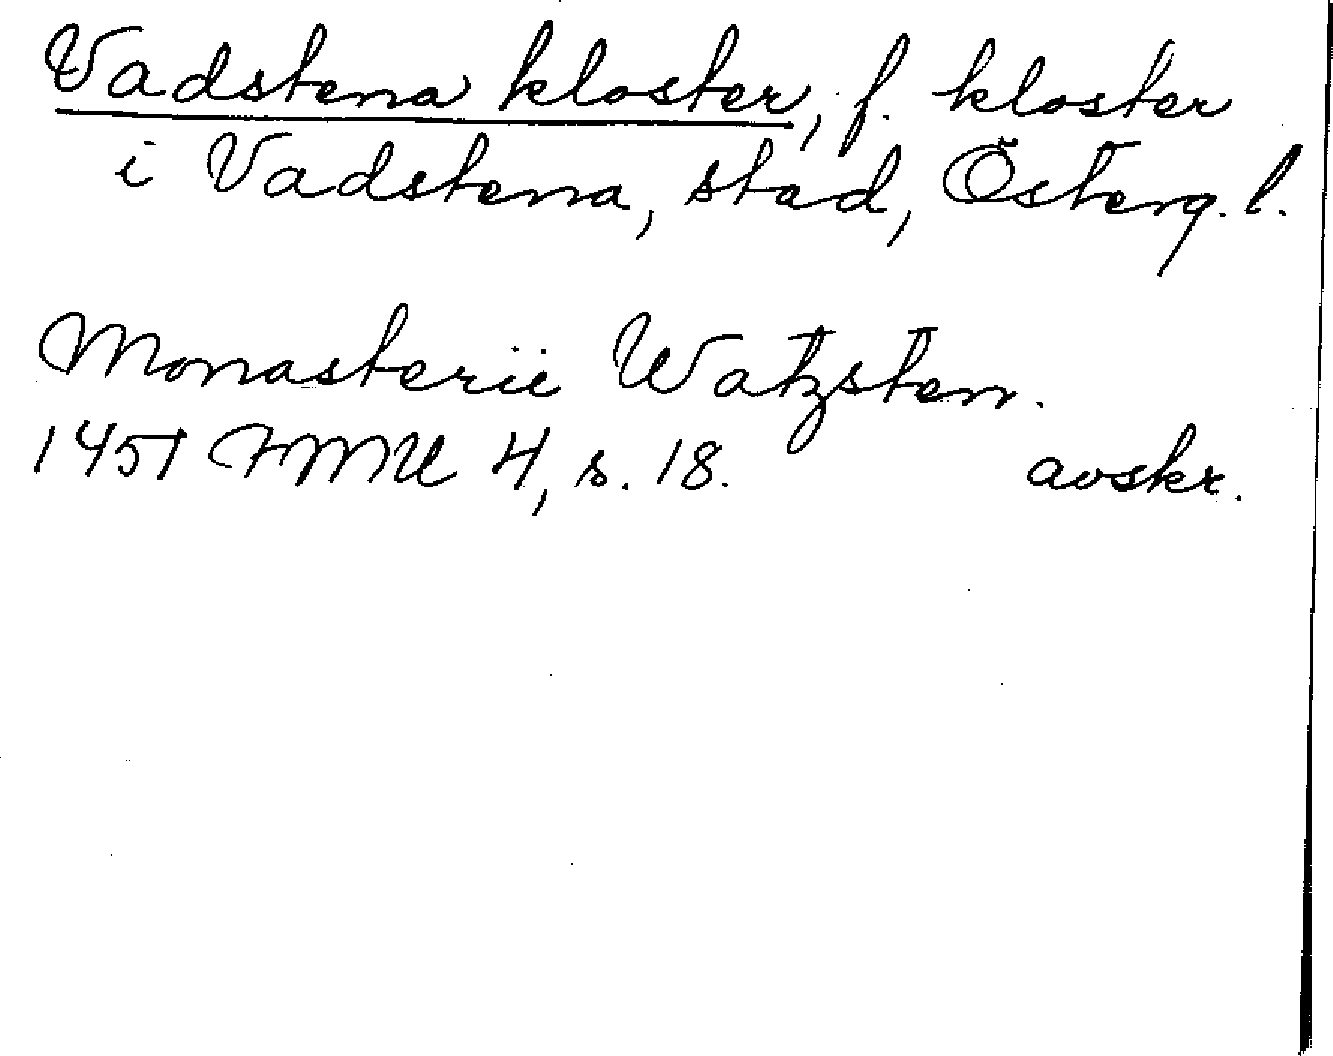 Vadstena kloster, f. kloster
i Vadstena, stad, Österg. l.
Monasterii Watzsten.
1451 FMU 4, s. 18. avskr.